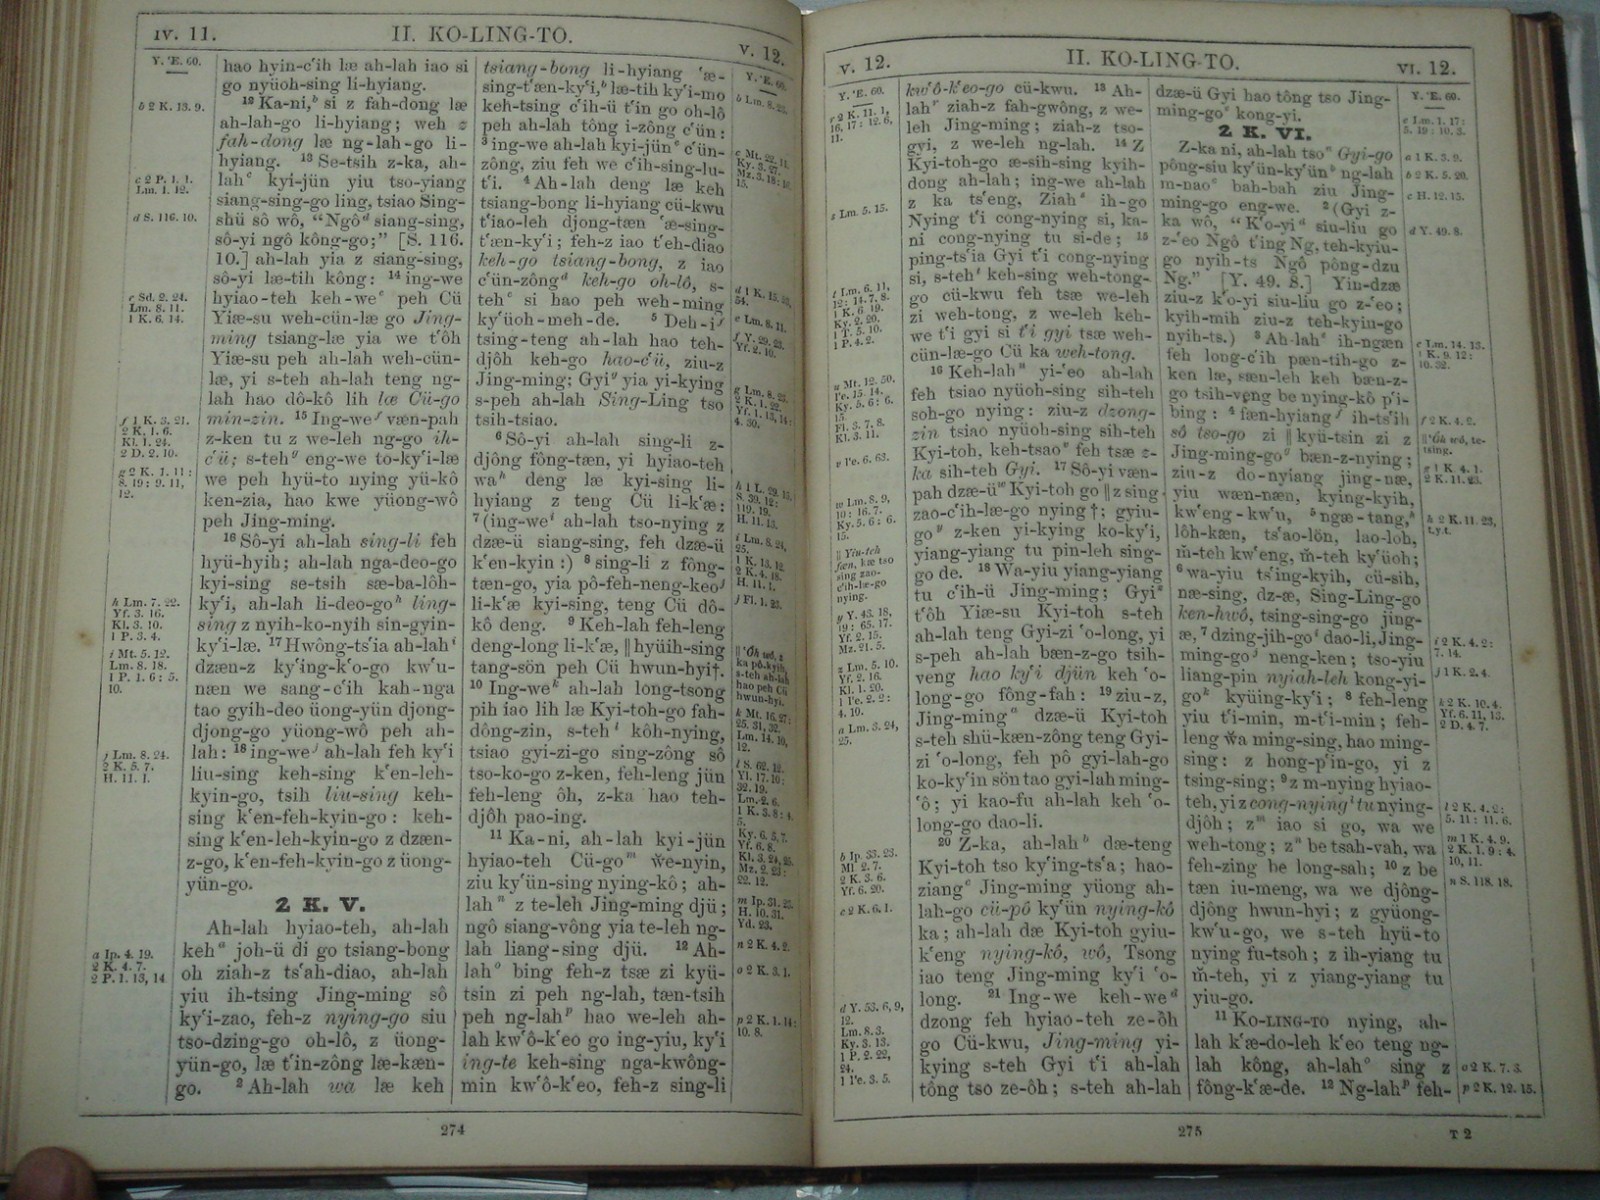 IV. 11.
II. KO-LING-TO.
V. 12.
Y. 'E. 60.
b 2 K. 13. 9.
c 2 P. 1. 1.
Lm. 1. 12.
d S. 116. 10.
e Sd. 2. 24.
Lm. 8. 11.
1 K. 6. 14.
f 1 K. 3. 21.
2 K. 1. 6.
Kl. 1. 24.
2 D. 2. 10.
g 2 K. 1. 11:
8. 19: 9. 11,
12.
h Lm. 7. 22.
Yf. 3. 16.
Kl. 3. 10.
1 P. 3. 4.
i Mt. 5. 12.
Lm. 8. 18.
1 P. 1. 6: 5.
10.
j Lm. 8. 24.
2 K. 5. 7.
H. 11. 1.
a Ip. 4. 19.
2 K. 4. 7.
2 P. 1. 13, 14.
hao hyin-c'ih læ ah-lah iao si
go nyüoh-sing li-hyiang.
12 Ka-ni,b si z fah-dong læ
ah-lah-go li-hyiang; weh z
fah-dong læ ng-lah-go li-
hyiang. 13 Se-tsih z-ka, ah-
lahc kyi-jün yiu tso-yiang
siang-sing-go ling, tsiao Sing-
shü sô wô, “Ngôd siang-sing,
sô-yi ngô kông-go;” [S. 116.
10.] ah-lah yia z siang-sing,
sô-yi læ-tih kông: 14 ing-we
hyiao-teh keh-wee peh Cü
Yiæ-su weh-cün-læ go Jing-
ming tsiang-læ yia we t'ôh
Yiæ-su peh ah-lah weh-cün-
læ, yi s-teh ah-lah teng ng-
lah hao dô-kô lih læ Cü-go
min-zin. 15 Ing-wef væn-pah
z-ken tu z we-leh ng-go ih-
c'ü; s-tehg eng-we to-ky'i-læ
we peh hyü-to nying yü-kô
ken-zia, hao kwe yüong-wô
peh Jing-ming.
16 Sô-yi ah-lah sing-li feh
hyü-hyih; ah-lah nga-deo-go
kyi-sing se-tsih sæ-ba-lôh-
ky'i, ah-lah li-deo-goh ling-
sing z nyih-ko-nyih sin-gyin-
ky'i-læ. 17 Hwông-ts'ia ah-lahi
dzæn-z ky'ing-k'o-go kw'u-
næn we sang-c'ih kah-nga
tao gyih-deo üong-yün djong-
djong-go yüong-wô peh ah-
lah: 18 ing-wej ah-lah feh ky'i
liu-sing keh-sing k'en-leh-
kyin-go, tsih liu-sing keh-
sing k'en-feh-kyin-go: keh-
sing k'en-leh-kyin-go z dzæn-
z-go, k'en-feh-kyin-go z üong-
yün-go.
2 K. V.
Ah-lah hyiao-teh, ah-lah
keha joh-ü di go tsiang-bong
oh ziah-z ts'ah-diao, ah-lah
yiu ih-tsing Jing-ming sô
ky'i-zao, feh-z nying-go siu
tso-dzing-go oh-lô, z üong-
yün-go, læ t'in-zông læ-kæn-
go. 2 Ah-lah wa læ keh
tsiang-bong li-hyiang 'æ-
sing-t'æn-ky'i,b læ-tih ky'i-mo
keh-tsing c'ih-ü t'in go oh-lô
peh ah-lah tông i-zông c'ün:
3 ing-we ah-lah kyi-jünc c'ün-
zông, ziu feh we c'ih-sing-lu-
t'i. 4 Ah-lah deng læ keh
tsiang-bong li-hyiang cü-kwu
t'iao-leh djong-tæn 'æ-sing-
t'æn-ky'i; feh-z iao t'eh-diao
keh-go tsiang-bong, z iao
c'ün-zôngd keh-go oh-lô, s-
tehe si hao peh weh-ming
ky'üoh-meh-de. 5 Deh-if
tsing-teng ah-lah hao teh-
djôh keh-go hao-c'ü, ziu-z
Jing-ming; Gyig yia yi-kying
s-peh ah-lah Sing-Ling tso
tsih-tsiao.
6 Sô-yi ah-lah sing-li z-
djông fông-tæn, yi hyiao-teh
wah deng læ kyi-sing li-
hyiang z teng Cü li-k'æ:
7 (ing-wei ah-lah tso-nying z
dzæ-ü siang-sing, feh dzæ-ü
k'en-kyin:) 8 sing-li z fông-
tæn-go, yia pô-feh-neng-keoj
li-k'æ kyi-sing, teng Cü dô-
kô deng. 9 Keh-lah feh-leng
deng-long li-k'æ, ‖ hyüih-sing
tang-sön peh Cü hwun-hyi†.
10 Ing-wek ah-lah long-tsong
pih iao lih læ Kyi-toh-go fah-
dông-zin, s-tehl kôh-nying,
tsiao gyi-zi-go sing-zông sô
tso-ko-go z-ken, feh-leng jün
feh-leng ôh, z-ka hao teh-
djôh pao-ing.
11 Ka-ni, ah-lah kyi-jün
hyiao-teh Cü-gom we-nyin,
ziu ky'ün-sing nying-kô; ah-
lahn z te-leh Jing-ming djü;
ngô siang-vông yia te-leh ng-
lah liang-sing djü. 12 Ah-
laho bing feh-z tsæ zi kyü-
tsin zi peh ng-lah, tæn-tsih
peh ng-lahp hao we-leh ah-
lah kw'ô-k'eo go ing-yiu, ky'i
ing-te keh-sing nga-kwông-
min kw'ô-k'eo, feh-z sing-li
Y. 'E. 60.
d 1 K. 15. 53,
54.
e Lm. 8. 11.
f Y. 29. 23.
Yf. 2. 10.
g Lm. 8. 23.
2 K. 1. 22.
Yf. 1. 13, 14:
4. 30.
h 1 L. 29. 15.
S. 39. 12:
119. 19.
H. 11. 13.
i Lm. 8. 24,
25.
1 K. 13. 12.
2 K. 4. 18.
H. 11. 1.
j Fl. 1. 23.
‖ 'Ôh wô, z
ka pô-kyih,
s-teh ah-lah
hao peh Cü
hwun-hyi.
k Mt. 16. 27:
25. 31, 32.
Lm. 14. 10,
12.
l S. 62. 12.
Yl. 17. 10:
32. 19.
Lm. 2. 6.
1 K. 3. 8: 4.
5.
Ky. 6. 5, 7.
Yf. 6. 8.
Kl. 3. 24, 25.
Mz. 2. 23:
22. 12.
m Ip. 31. 23.
H. 10. 31.
Yd. 23.
n 2 K. 4. 2.
o 2 K. 3. 1.
p 2 K. 1. 14:
10. 8.
274
V. 12.
II. KO-LING-TO.
VI. 12.
Y. 'E. 60.
r 2 K. 11. 1,
16, 17: 12. 6,
11.
s Lm. 5. 15.
t Lm. 6. 11,
12: 14. 7, 8.
1 K. 6. 19.
Ky. 2. 20.
1 T. 5. 10.
1 P. 4. 2.
u Mt. 12. 50.
I'e. 15. 14.
Ky. 5. 6: 6.
15.
Fl. 3. 7, 8.
Kl. 3. 11.
v I'e. 6. 63.
w Lm. 8. 9,
10: 16. 7.
Ky. 5. 6: 6.
15.
‖ Yiu-teh
fæn, kæ tso
sing zao-
c'ih-læ-go
nying.
y Y. 43. 18,
19: 65. 17.
Yf. 2. 15.
Mz. 21. 5.
z Lm. 5. 10.
Yf. 2. 16.
Kl. 1. 20.
1 I'e. 2. 2:
4. 10.
a Lm. 3. 24,
25.
b Ip. 33. 23.
Ml 2. 7.
2 K. 3. 6.
Yf. 6. 20.
c 2 K. 6. 1.
d Y. 53. 6, 9,
12.
Lm. 8. 3.
Ky. 3. 13.
1 P. 2. 22,
24.
1 I'e. 3. 5.
kw'ô-k'eo-go cü-kwu. 13 Ah-
lahr ziah-z fah-gwông, z we-
leh Jing-ming; ziah-z tso-
gyi, z we-leh ng-lah. 14 Z
Kyi-toh-go æ-sih-sing kyih-
dong ah-lah; ing-we ah-lah
z ka ts'eng, Ziahs ih-go
Nying t'i cong-nying si, ka-
ni cong-nying tu si-de; 15
ping-ts'ia Gyi t'i cong-nying
si, s-teht keh-sing weh-tong-
go cü-kwu feh tsæ we-leh
zi weh-tong, z we-leh keh-
we t'i gyi si t'i gyi tsæ weh-
cün-læ-go Cü ka weh-tong.
16 Keh-lahu yi-'eo ah-lah
feh tsiao nyüoh-sing sih-teh
soh-go nying: ziu-z dzong-
zin tsiao nyüoh-sing sih-teh
Kyi-toh, keh-tsaov feh tsæ z-
ka sih-teh Gyi. 17 Sô-yi væn-
pah dzæ-üw Kyi-toh go ‖ z sing
zao-c'ih-læ-go nying†; gyiu-
goy z-ken yi-kying ko-ky'i,
yiang-yiang tu pin-leh sing-
go de. 18 Wa-yiu yiang-yiang
tu c'ih-ü Jing-ming; Gyiz
t'ôh Yiæ-su Kyi-toh s-teh
ah-lah teng Gyi-zi 'o-long, yi
s-peh ah-lah bæn-z-go tsih-
veng hao ky'i djün keh 'o-
long-go fông-fah: 19 ziu-z,
Jing-minga dzæ-ü Kyi-toh
s-teh shü-kæn-zông teng Gyi-
zi 'o-long, feh pô gyi-lah-go
ko-ky'in sön tao gyi-lah ming-
'ô; yi kao-fu ah-lah keh 'o-
long-go dao-li.
20 Z-ka, ah-lahb dæ-teng
Kyi-toh tso ky'ing-ts'a; hao-
ziangc Jing-ming yüong ah-
lah-go cü-pô ky'ün nying-kô
ka; ah-lah dæ Kyi-toh gyiu-
k'eng nying-kô, wô, Tsong
iao teng Jing-ming ky'i 'o-
long. 21 Ing-we keh-wed
dzong feh hyiao-teh ze-ôh
go Cü-kwu, Jing-ming yi-
kying s-teh Gyi t'i ah-lah
tông tso ze-ôh; s-teh ah-lah
dzæ-ü Gyi hao tông tso Jing-
ming-goe kong-yi.
2 K. VI.
Z-ka ni, ah-lah tsoa Gyi-go
pông-siu ky'ün-ky'ünb ng-lah
m-naoc bah-bah ziu Jing-
ming-go eng-we. 2 (Gyi z-
ka wô, “ K'o-yid siu-liu go
z-'eo Ngô t'ing Ng, teh-kyiu-
go nyih-ts Ngô pông-dzu
Ng.” [Y. 49. 8.] Yin-dzæ
ziu-z k'o-yi siu-liu go z-'eo;
kyih-mih ziu-z teh-kyiu-go
nyih-ts.) 3 Ah-lahe ih-ngæn
feh long-c'ih pæn-tih-go z-
ken læ, sæn-leh keh bæn-z-
go tsih-veng be nying-kô p'i-
bing: 4 fæn-hyiangf ih-ts'ih
sô tso-go zi ‖ kyü-tsin zi z
Jing-ming-gog bæn-z-nying;
ziu-z do-nyiang jing-næ,
yiu wæn-næn, kying-kyih,
kw'eng-kw'u, 5 ngæ-tang,h
lôh-kæn, ts'ao-lön, lao-loh,
m̄-teh kw'eng, m̄-teh ky'üoh;
6 wa-yiu ts'ing-kyih, cü-sih,
næ-sing, dz-æ, Sing-Ling-go
ken-hwô, tsing-sing-go jing-
æ, 7 dzing-jih-goi dao-li, Jing-
ming-goj neng-ken; tso-yiu
liang-pin nyiah-leh kong-yi-
gok kyüing-ky'i; 8 feh-leng
yiu t'i-min, m-t'i-min; feh-
leng wa ming-sing, hao ming-
sing: z hong-p'in-go, yi z
tsing-sing; 9 z m-nying hyiao-
teh, yi z cong-nyingl tu nying-
djôh; zm iao si go, wa we
weh-tong; zn be tsah-vah, wa
feh-zing be long-sah; 10 z be
tæn iu-meng, wa we djông-
djông hwun-hyi; z gyüong-
kw'u-go, we s-teh hyü-to
nying fu-tsoh; z ih-yiang tu
m̄-teh, yi z yiang-yiang tu
yiu-go.
11 Ko-ling-to nying, ah-
lah k'æ-do-leh k'eo teng ng-
lah kông, ah-laho sing z
fông-k'æ-de. 12 Ng-lahp feh-
Y. 'E. 60.
e Lm. 1. 17:
5. 19: 10. 3.
a 1 K. 3. 9.
b 2 K. 5. 20.
c H. 12. 15.
d Y. 49. 8.
e Lm. 14. 13.
1 K. 9. 12:
10. 32.
f 2 K. 4. 2.
‖ 'Ôh wô, te-
tsing.
g 1 K. 4. 1.
2 K. 11. 23.
h 2 K. 11. 23,
t.y.t.
i 2 K. 4. 2:
7. 14.
j 1 K. 2. 4.
k 2 K. 10. 4.
Yf. 6. 11, 13.
2 D. 4. 7.
l 2 K. 4. 2:
5. 11: 11. 6.
m 1 K. 4. 9.
2 K. 1. 9: 4.
10, 11.
n S. 118. 18.
o 2 K. 7. 3.
p 2 K. 12. 15.
275
T 2